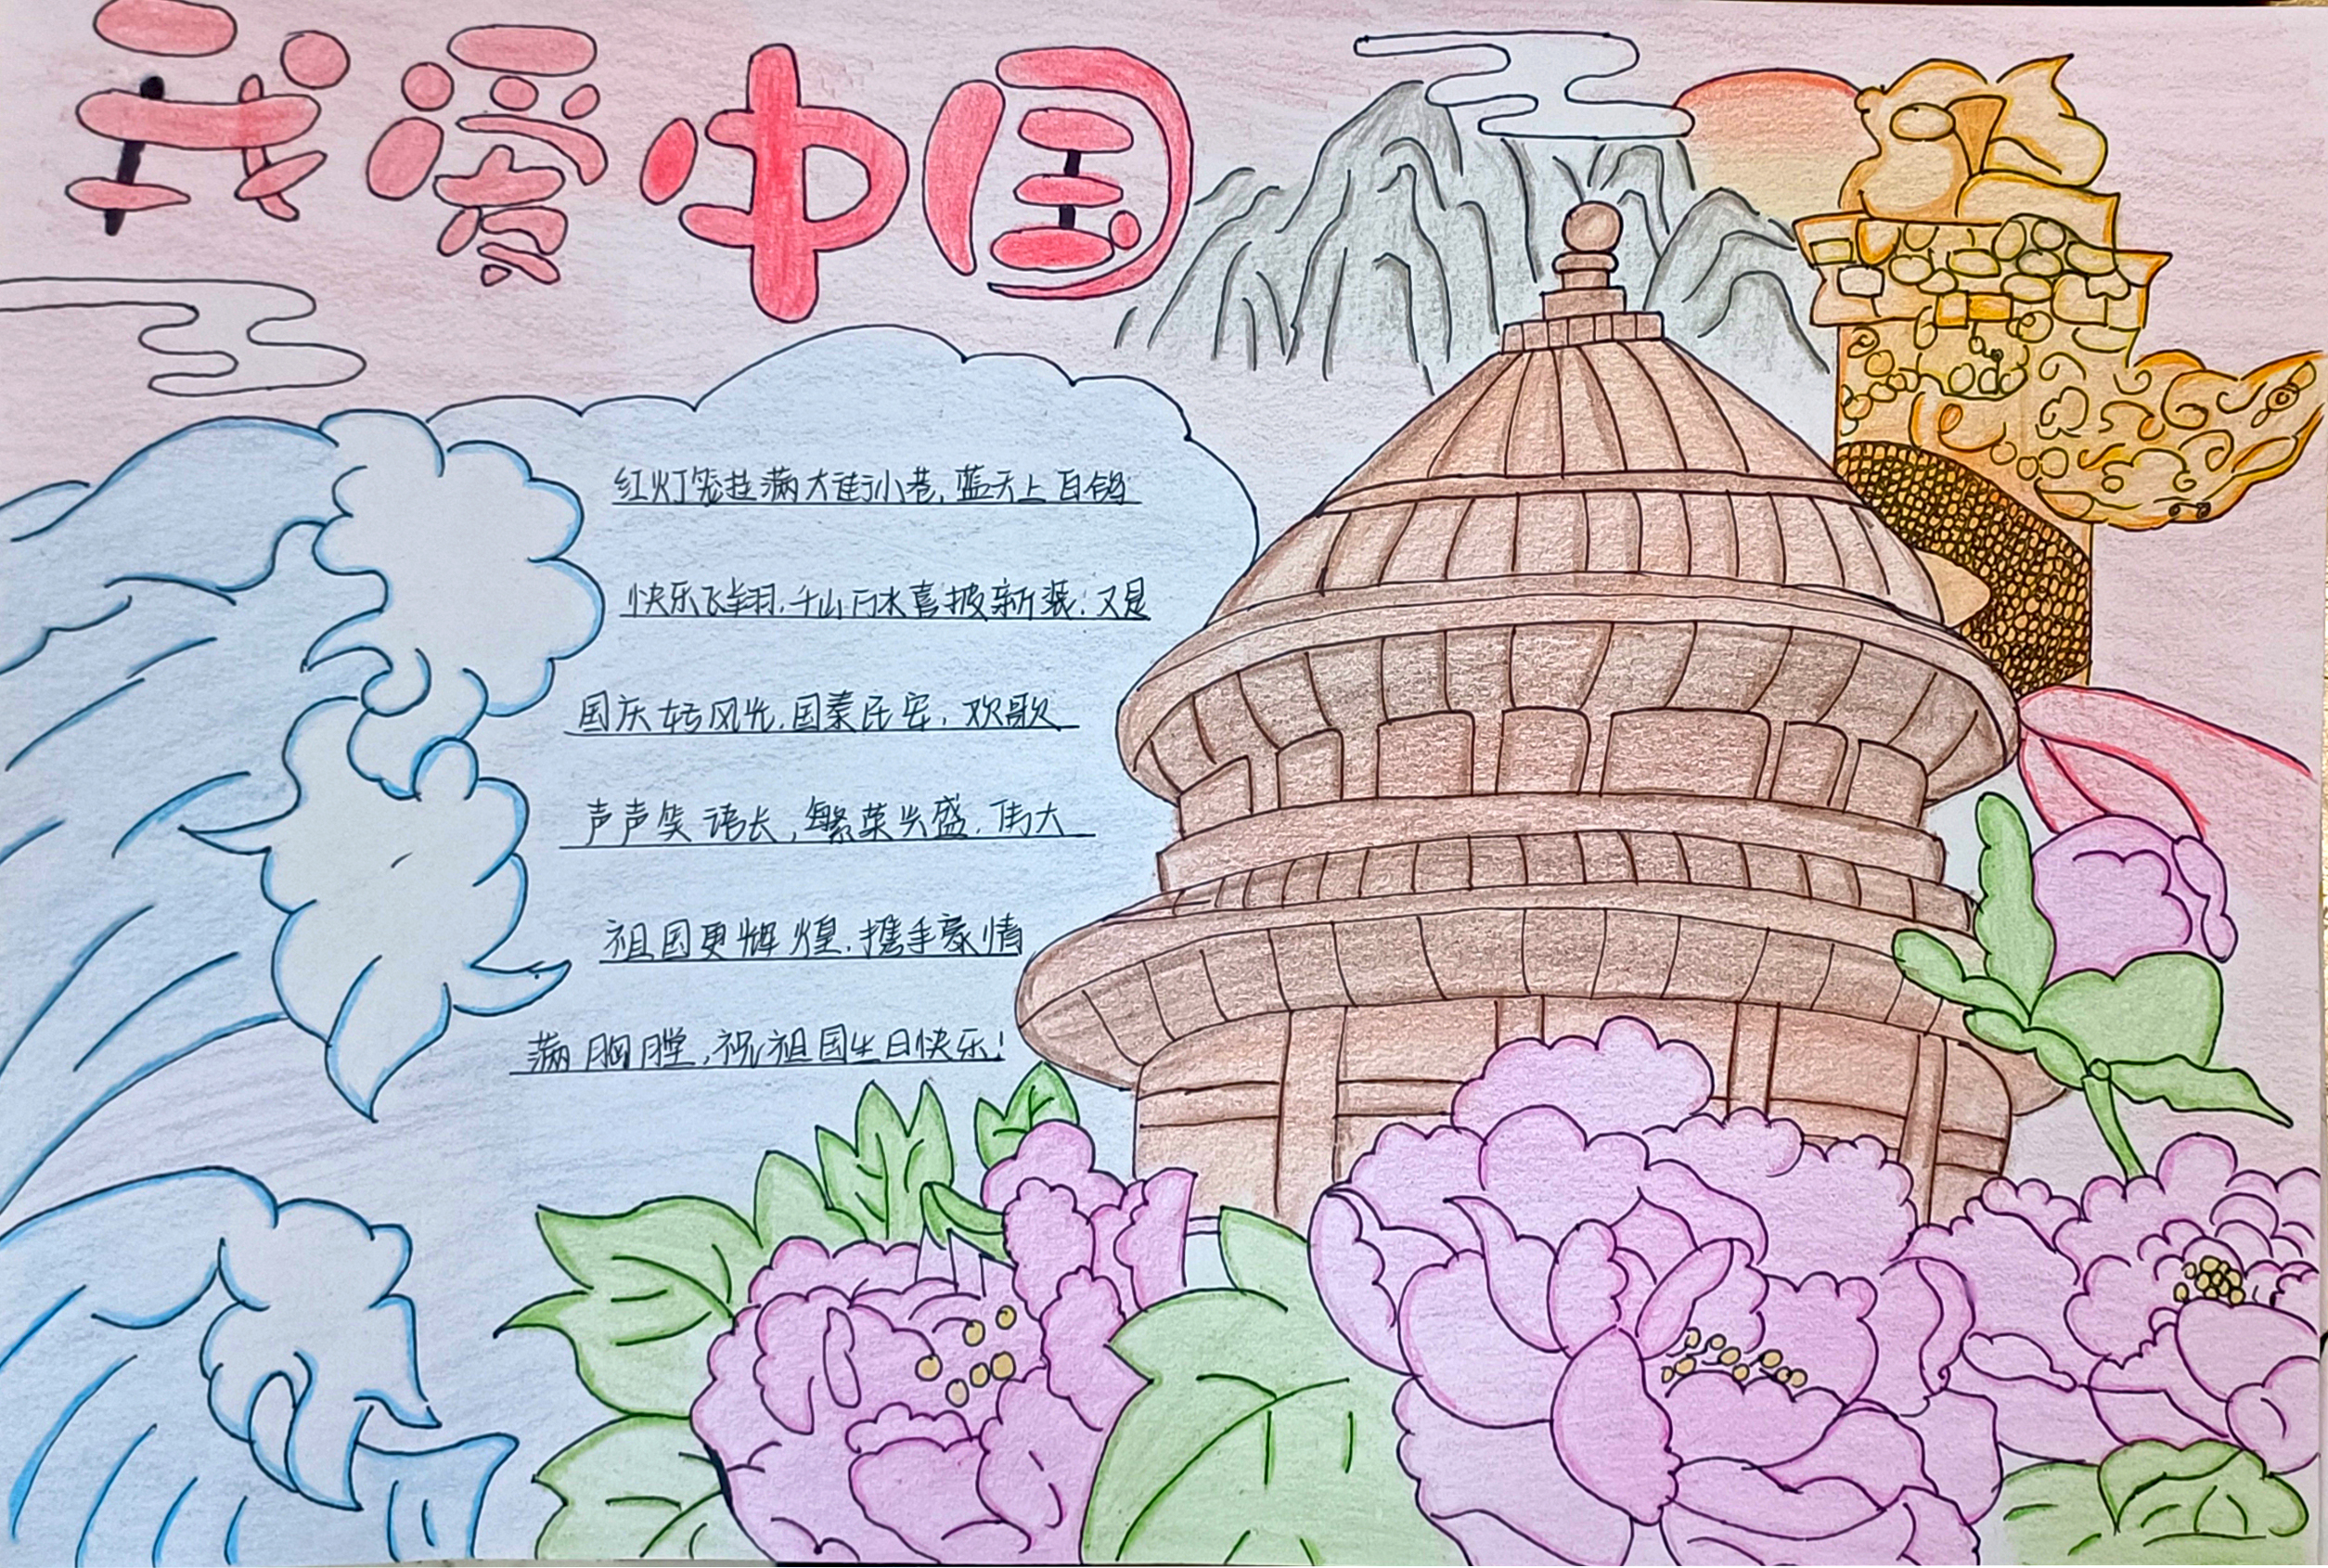 我爱中国
红灯笼挂满大街小巷,蓝天上白鸽
快乐飞翔.千山万水喜披新装.又是
国庆好风光.国泰民安,欢歌
声声笑语长,繁荣兴盛.伟大
祖国更辉煌.携手豪情
满胸膛,祝祖国生日快乐!